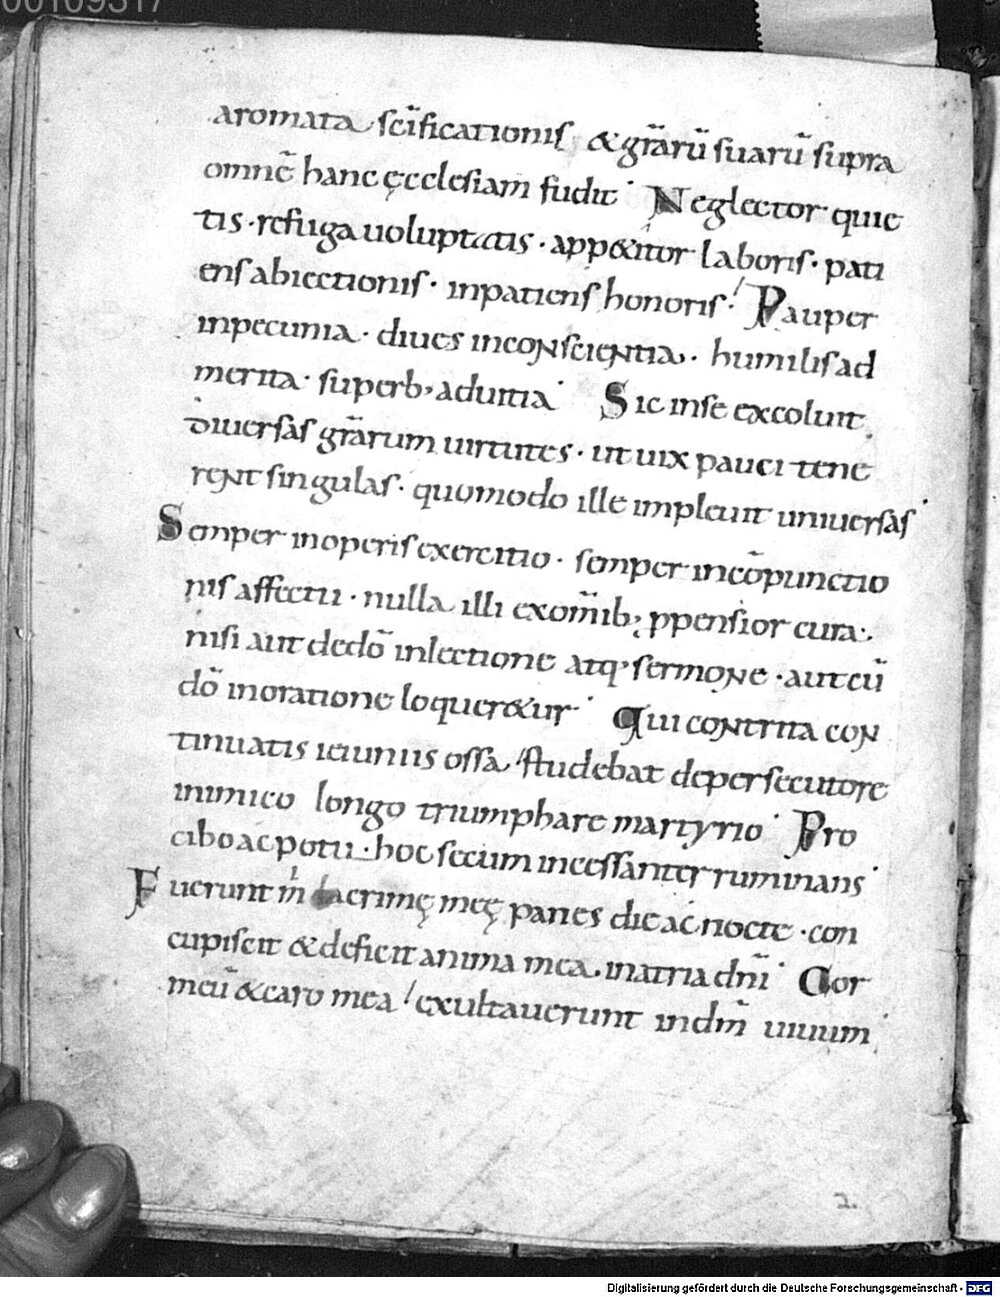 00109317
aromata scīficationis & gr̄arū suarū supra
omnē hanc ęcclesiam fudit. Neglector quie
tis · refuga uoluptatis · app&itor laboris · pati
ens abiectionis · inpatiens honoris. Pauper
inpecunia · diues inconscientia · humilis ad
merita · superb' aduitia. Sic inse excoluit
diuersas gr̄arum uirtutes · ut uix pauci tene
rent singulas · quomodo ille impleuit uniuersas.
Semper inoperis exercitio · semper incōpunctio
nis affectu · nulla illi exom̄ib; ꝓpensior cura ·
nisi aut dedō inlectione atq' sermone · aut cū
dō inoratione loquer&ur. Qui contrita con
tinuatis ieiuniis ossa / studebat depersecutore
inimico longo triumphare martyrio. Pro
cibo ac potu hoc secum incessanter ruminans.
Fuerunt m̄ lacrimę meę panes die ac nocte · con
cupiscit & deficit anima mea · inatria dn̄i. Cor
meū & caro mea / exultauerunt indm̄ uiuum
2.
Digitalisierung gefördert durch die Deutsche Forschungsgemeinschaft - DFG